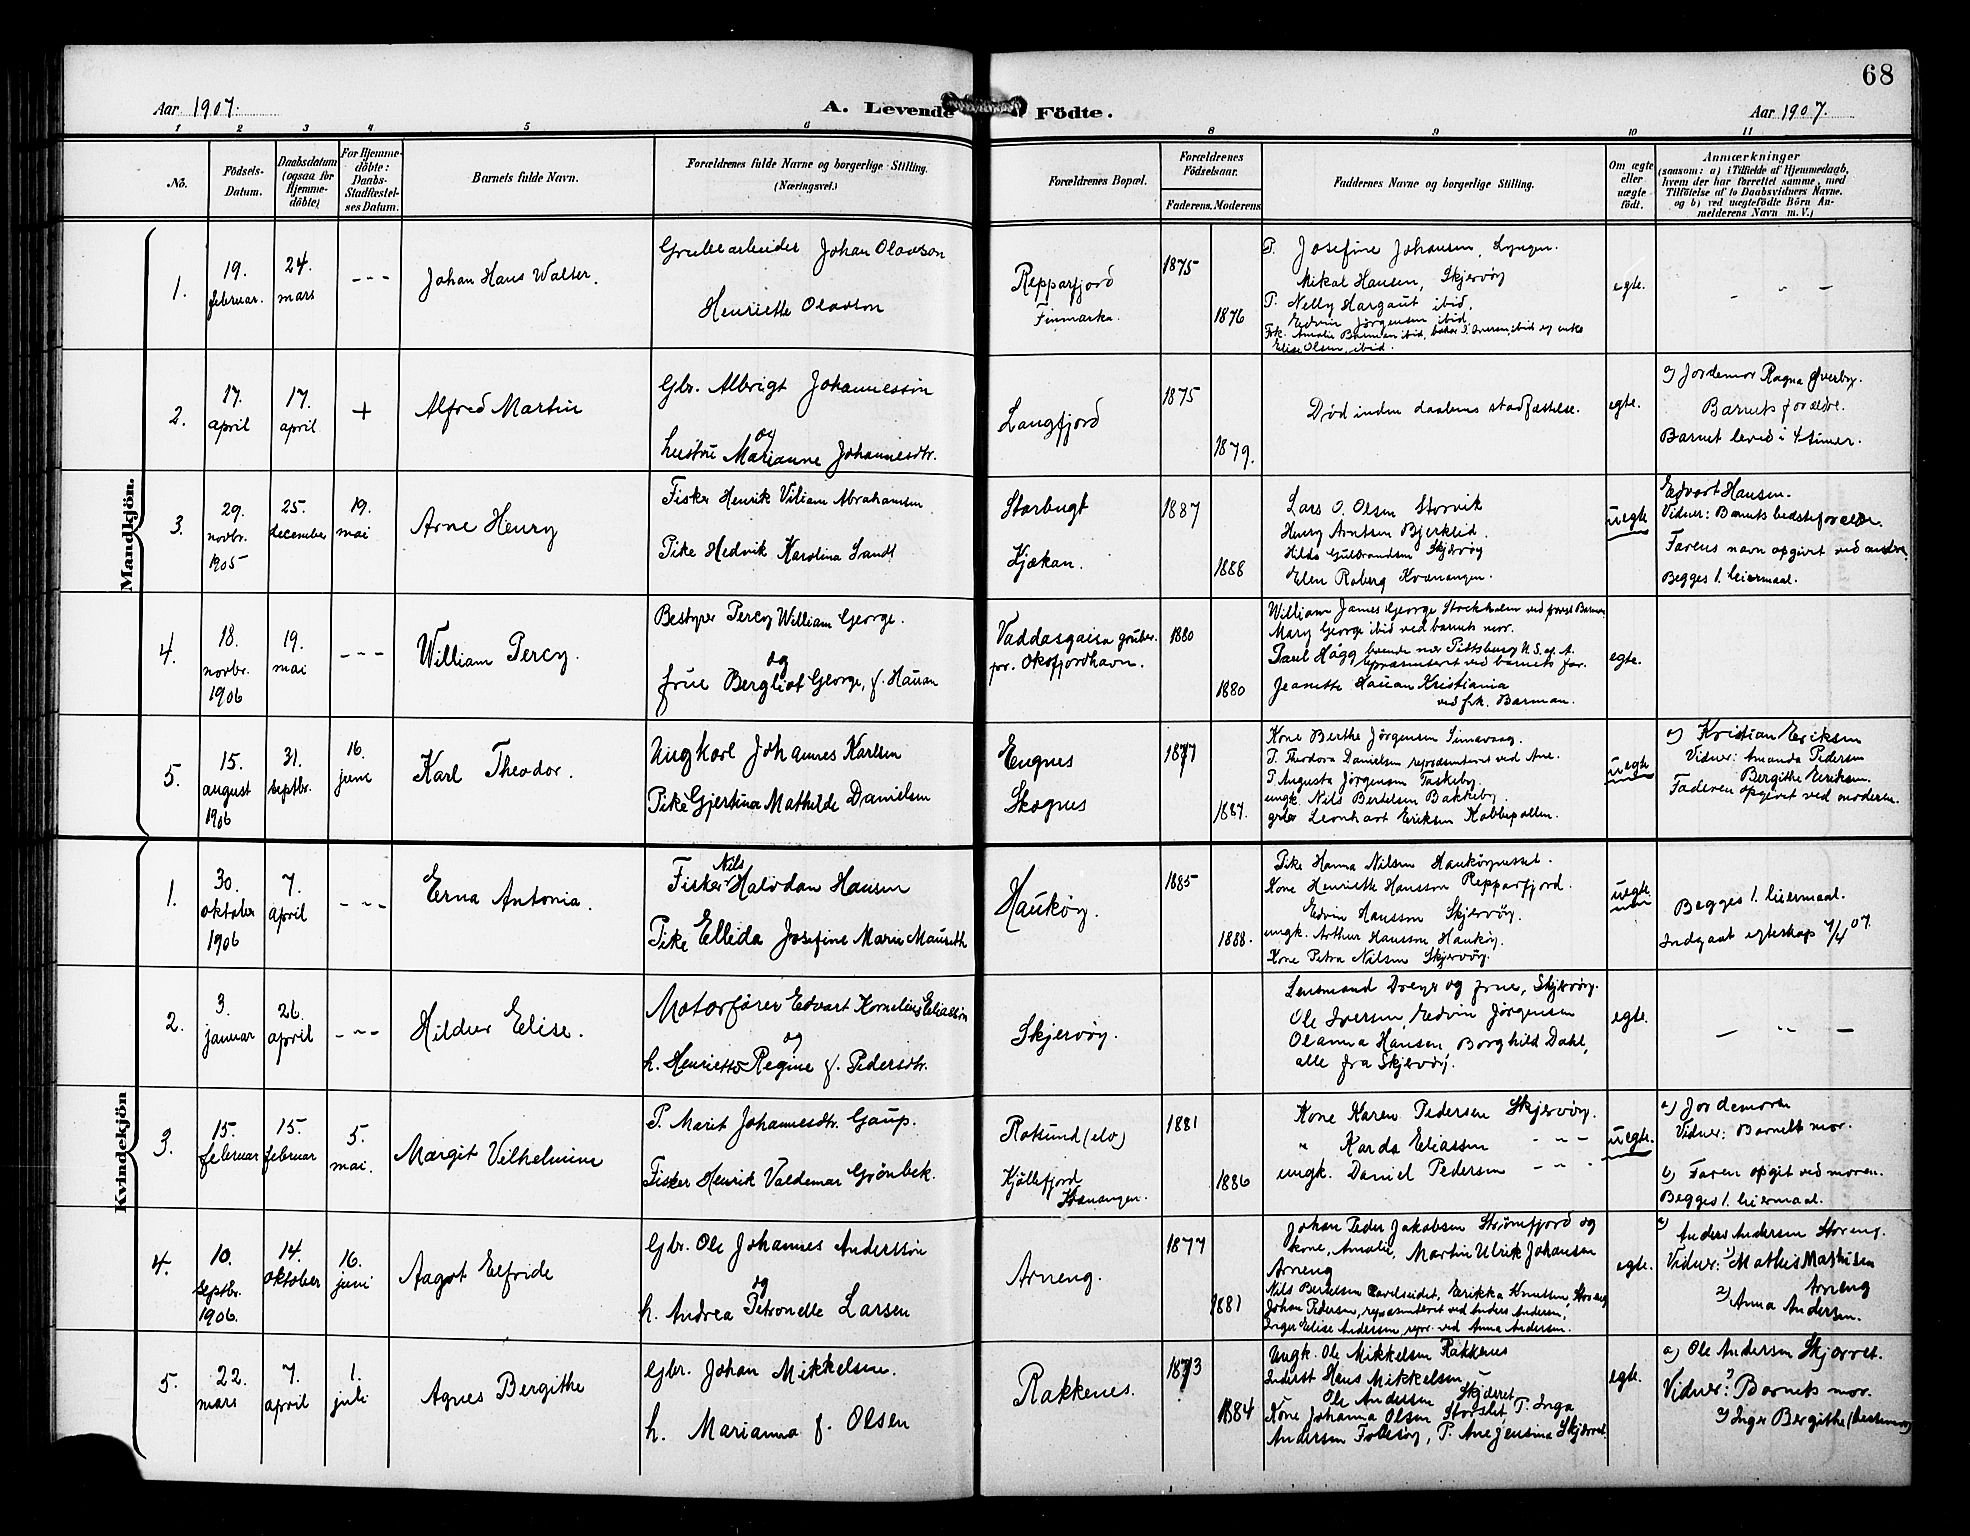 68
Aar 1907.
A. Levende Födte.
Aar 1907.
1 2 3 4 5 6 8 9 10 11
No.
Födsels-Datum.
Daabsdatum (ogsaa for Hjemme-döbte)
For Hjemme-döbte: Daabs-Stadfæstel-ses Datum.
Barnets fulde Navn.
Forældrenes fulde Navne og borgerlige Stilling. (Næringsvei.)
Forældrenes Bopæl.
Forældrenes Födselsaar.
Faderens. Moderens.
Faddernes Navne og borgerlige Stilling.
Om ægte eller uægte födt.
Anmærkninger
(saasom: a) i Tilfælde af Hjemmedaab, hvem der har forrettet samme, med Tilföielse af to Daabsvidners Navne. og b) ved uægtefödte Börn An-melderens Navn m. V.)
Mandkjön.
1.
19. februar.
24. mars
- - -
Johan Hans Walter.
Grubearbeider Johan Olavson
Henriette Olavson
Repparfjord
Finmarka.
1875
1876
P. Josefine Johansen, Lyngen.
Mikal Hansen, Skjervöy
P. Nelly Hargaut ibid.
Edvin Jörgensen ibid.
Frk. Amalie Barman ibid, Iversen, ibid og enke
Elise Olsen, ibid.
egte.
- " -
2.
17. april
17. april
+
Alfred Martin
Gbr. Albrigt Johannessön
og
hustru Marianne Johannesdtr.
Langfjord
1875
1879.
Död inden daabens stadfæstelse.
egte.
a) Jordemor Ragna Øverby.
Barnets forældre.
Barnet leved i 4 timer.
3.
29. novbr. 1905
25. december
19. mai
Arne Henry
Fisker Henrik Viliam Abrahamsen
Pike Hedvik Karolina Sandl
Storbugt
Kjækan.
1887
1888
Lars O. Olsen Storvik
Henry Arntsen Bjerkleid.
Hilda Gulbrandsen Skjervöy
Elen Roberg Kvænangen.
uegte
Edvart Hansen.
Vidner: Barnets bedsteforældre.
Farens navn opgivet ved andre.
Begges 1. leiermaal.
4.
18. novbr. 1906
19. mai
- - -
William Percy.
Bestyrer Percy William George.
og
frue Bergliot George, f. Hauan
Vaddasgaisa gruber
pr. Oksfjordhavn.
1880
1880
William James George Stockholm ved Barman
Mary George ibid ved barnets mor.
Paul Hägg boende nær Pittsburg U.S. of A.
repræsenteret ved barnets far.
Jeanette Hauan Kristiania
ved frk. Barman.
egte.
5.
15. august 1906
31. septbr.
16. juni
Karl Theodor.
Ungkarl Johannes Karlsen
Pike Gjertina Mathilde Danielsen
Engnes
Skognes
1877
1887.
Kone Berthe Jörgensen
P. Theodora Danielsen repræsenteret ved Ane.
P. Augusta Jörgensen Taskeby.
ungk. Nils Bertelsen Bakkeby
gbr. Leonhart Eriksen Kobbepollen.
uegte
a) Kristian Eriksen
Vidner: Amanda Pedersen
Bergithe Eriksen.
Faderen opgivet ved moderen.
Kvindekjön
1.
30. oktober 1906
7. april
- - -
Erna Antonia.
Nils
Fisker Halvdan Hansen
Pike Ellida Josefine Marie Maureth
Hauköy.
1885
1888.
Pike Hanna Nilsen Hauköynesset.
Kone Henriette Hansson Repparfjord.
Edvin Hansson Skjervöy.
ungk. Arthur Hansson Hauköy.
Kone Petra Nilsen Skjervöy.
uegte
Begges 1. leiermaal.
Indgaat egteskap 7/4 07.
2.
3. januar
26. april
- - -
Hildur Elise.
Motorförer Edvart Kornelius Eliassön
og
h. Henriette Regine f. Pedersdtr.
Skjervöy.
Lensmand Dreyer og frue, Skjervöy.
Ole Iversen, Edvin Jörgensen
Olanna Hansen, Borghild Dahl,
alle fra Skjervöy.
egte.
- " -
3.
15. februar
15. februar
5. mai.
Margit Vilhelmine
P. Marit Johannesdtr. Gaup.
Fisker Henrik Valdemar Grönbek.
Rotsund (elv)
Kjöllefjord
Kvænangen.
1881
1886
Kone Karen Pedersen Skjervöy.
" Karda Eliassen - " -
ungk. Daniel Pedersen - " -
uegte.
a) Jordemoren
Vidner: Barnets mor.
b) Faren opgit ved moren.
Begges 1. leiermaal.
4.
10. septbr. 1906.
14. oktober
16. juni
Aagot Elfride
Gbr. Ole Johannes Anderssön
og
h. Andrea Petronelle Larsen
Arneng.
1877
1881
Johan Peder Jakobsen Strömfjord og
kone, Amalie, Martin Ulrik Johansen
Arneng
Nils Bertelsen Ravelseidet, Erikka Knutsen,
Johan Pedersen, repræsenteret ved Anders Andersen,
Inger Elise Andersen repr. ved Anna Andersen.
egte.
a) Anders Andersen Storeng.
Vidner: 1) Mathis Mathisen
Arneng
2) Anna Andersen.
5.
22. mars
7. april
1. juli
Agnes Bergithe
Gbr. Johan Mikkelsen.
h. Marianna f. Olsen
Rakkenes.
1873
1884
Ungk. Ole Mikkelsen Rakkenes
Inderst Hans Mikkelsen -
Ole Andersen Skjæret
Kone Johanna Olsen Storslet, P. Inga
Andersen, P. Ane Jensina Skjæret.
egte.
a) Ole Andersen Skjæret.
Vidner: 1) Barnets mor.
2) Inger Bergithe